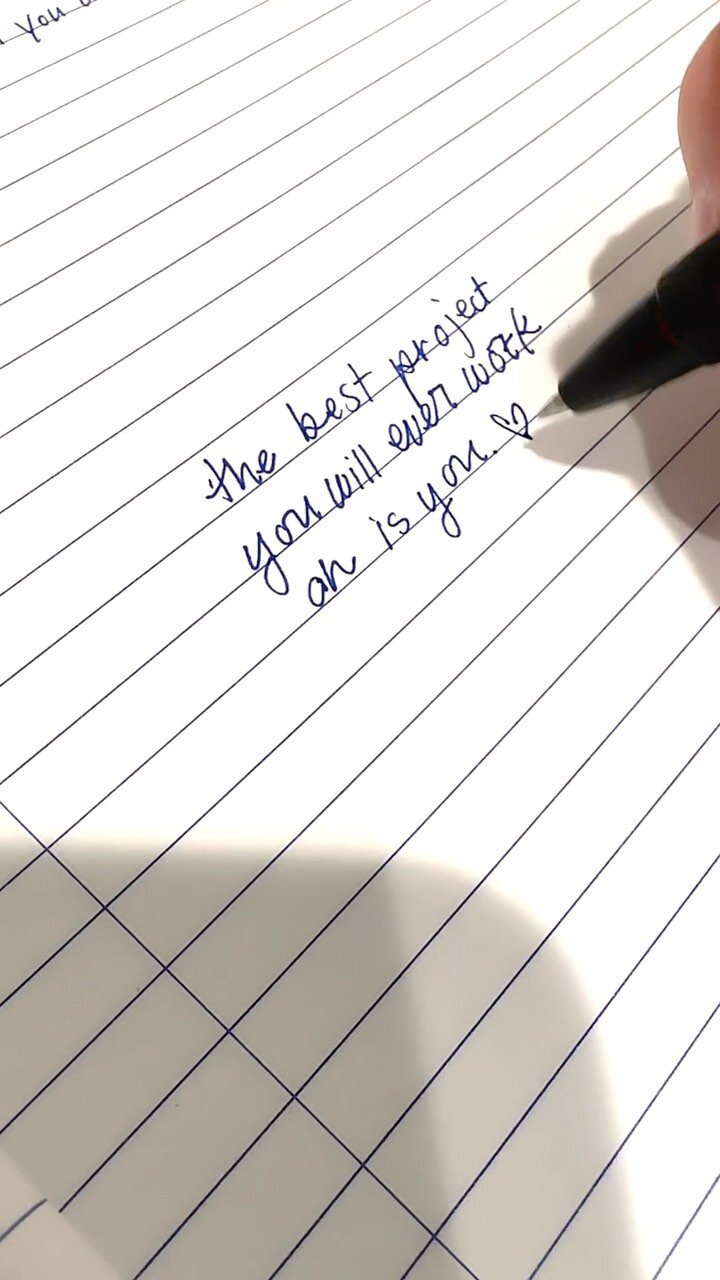 you
the best project
you will ever work
on is you. ♡